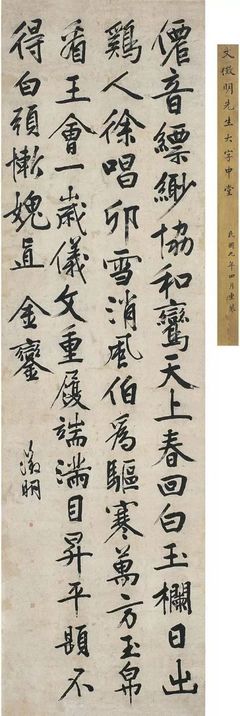 僊音縹緲協和鸞天上春回白玉欄日出
鷄人徐唱卯雪消風伯爲驅寒萬方玉帛
看王會一歲儀文重履端滿目昇平題不
得白頭慚媿直金鑾
徵明
文徵明先生大字中堂
民國九年四月重裝